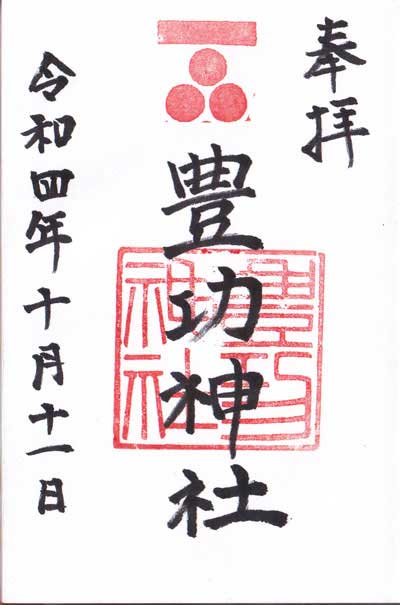 奉拝
豊功神社
豊功神社
令和四年十月十一日